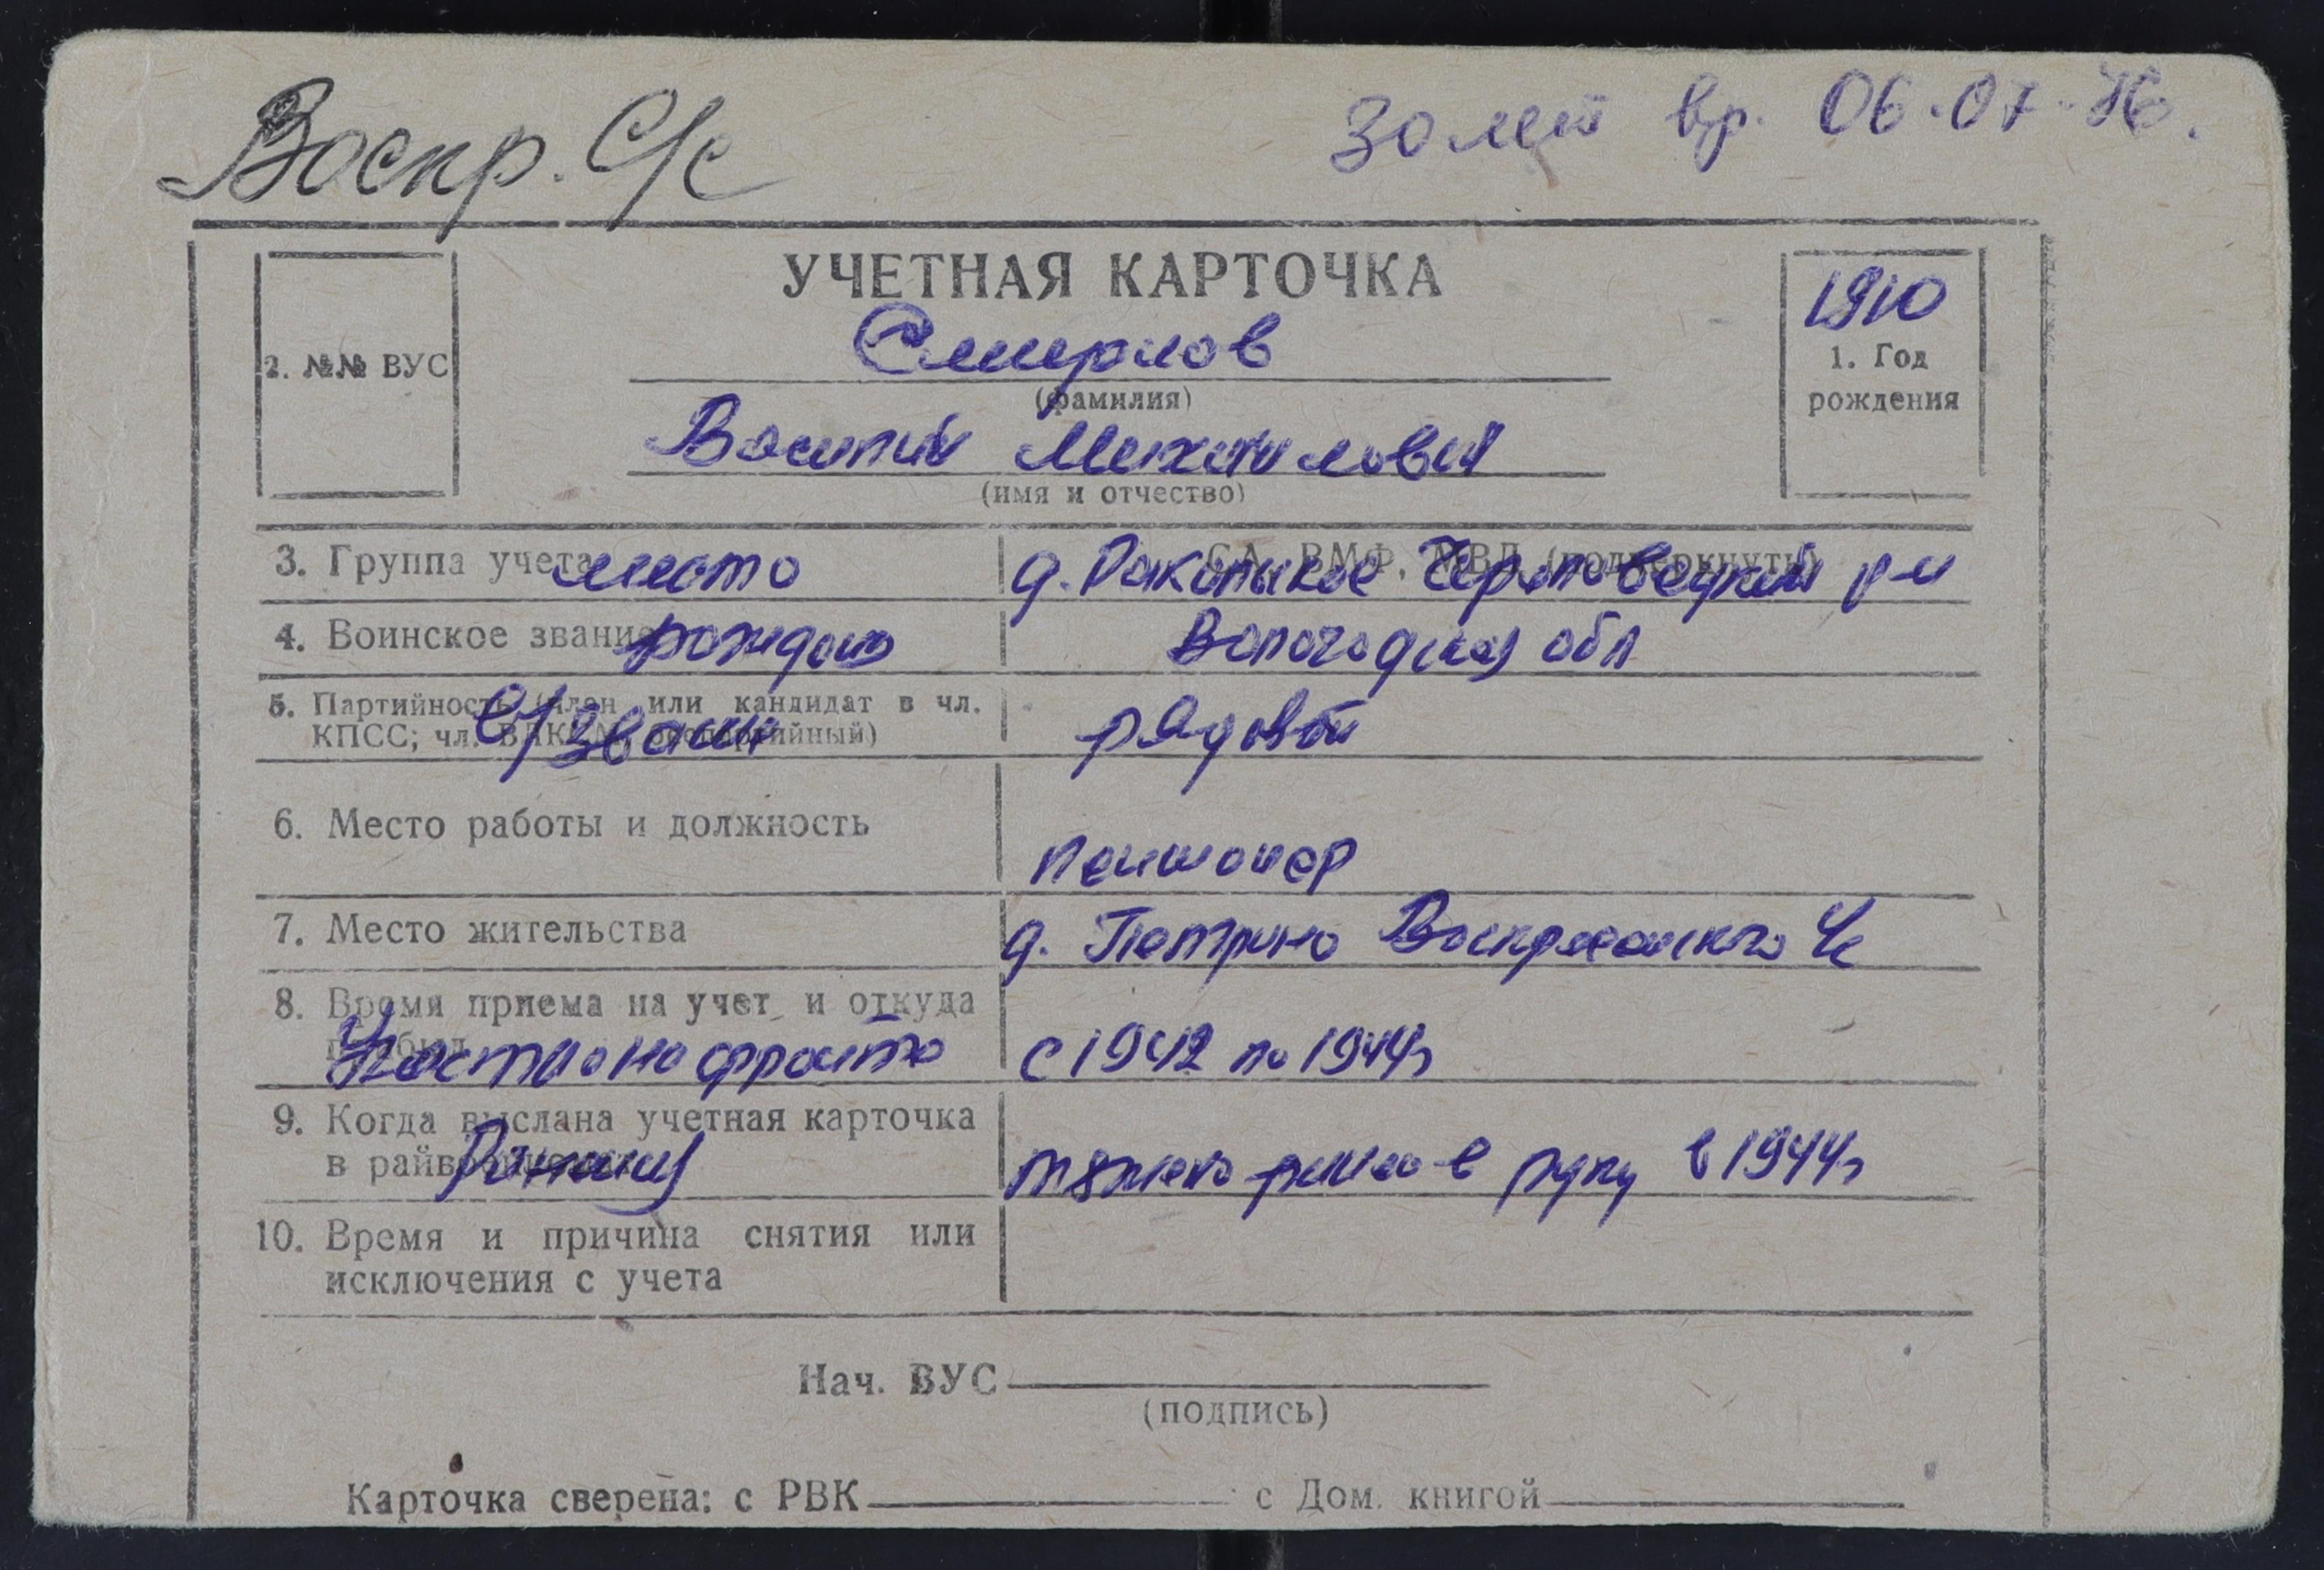 Воспр. С/с
30 лет вр. 06.07.76.
УЧЕТНАЯ КАРТОЧКА
1910
1. Год
рождения
2. №№ ВУС
Смирнов
(фамилия)
Василий Михайлович
(имя и отчество)
3. Группа учета место СА, ВМФ, МВД (подчеркнуть) д. Череповецкий р-н
4. Воинское звание рождения Вологодская обл
5. Партийность (член или кандидат в чл.
КПСС; чл. ВЛКСМ, беспартийный) в/звание рядовой
6. Место работы и должность пенсионер
7. Место жительства д. Петрино Воскресенского с/с
8. Время приема на учет и откуда
прибыл Участие на фронте с 1942 по 1944г
9. Когда выслана учетная карточка
в райвоенкомат тяжело ранен в руку в 1944г
10. Время и причина снятия или
исключения с учета
Нач. ВУС
(подпись)
Карточка сверена: с РВК с Дом. книгой